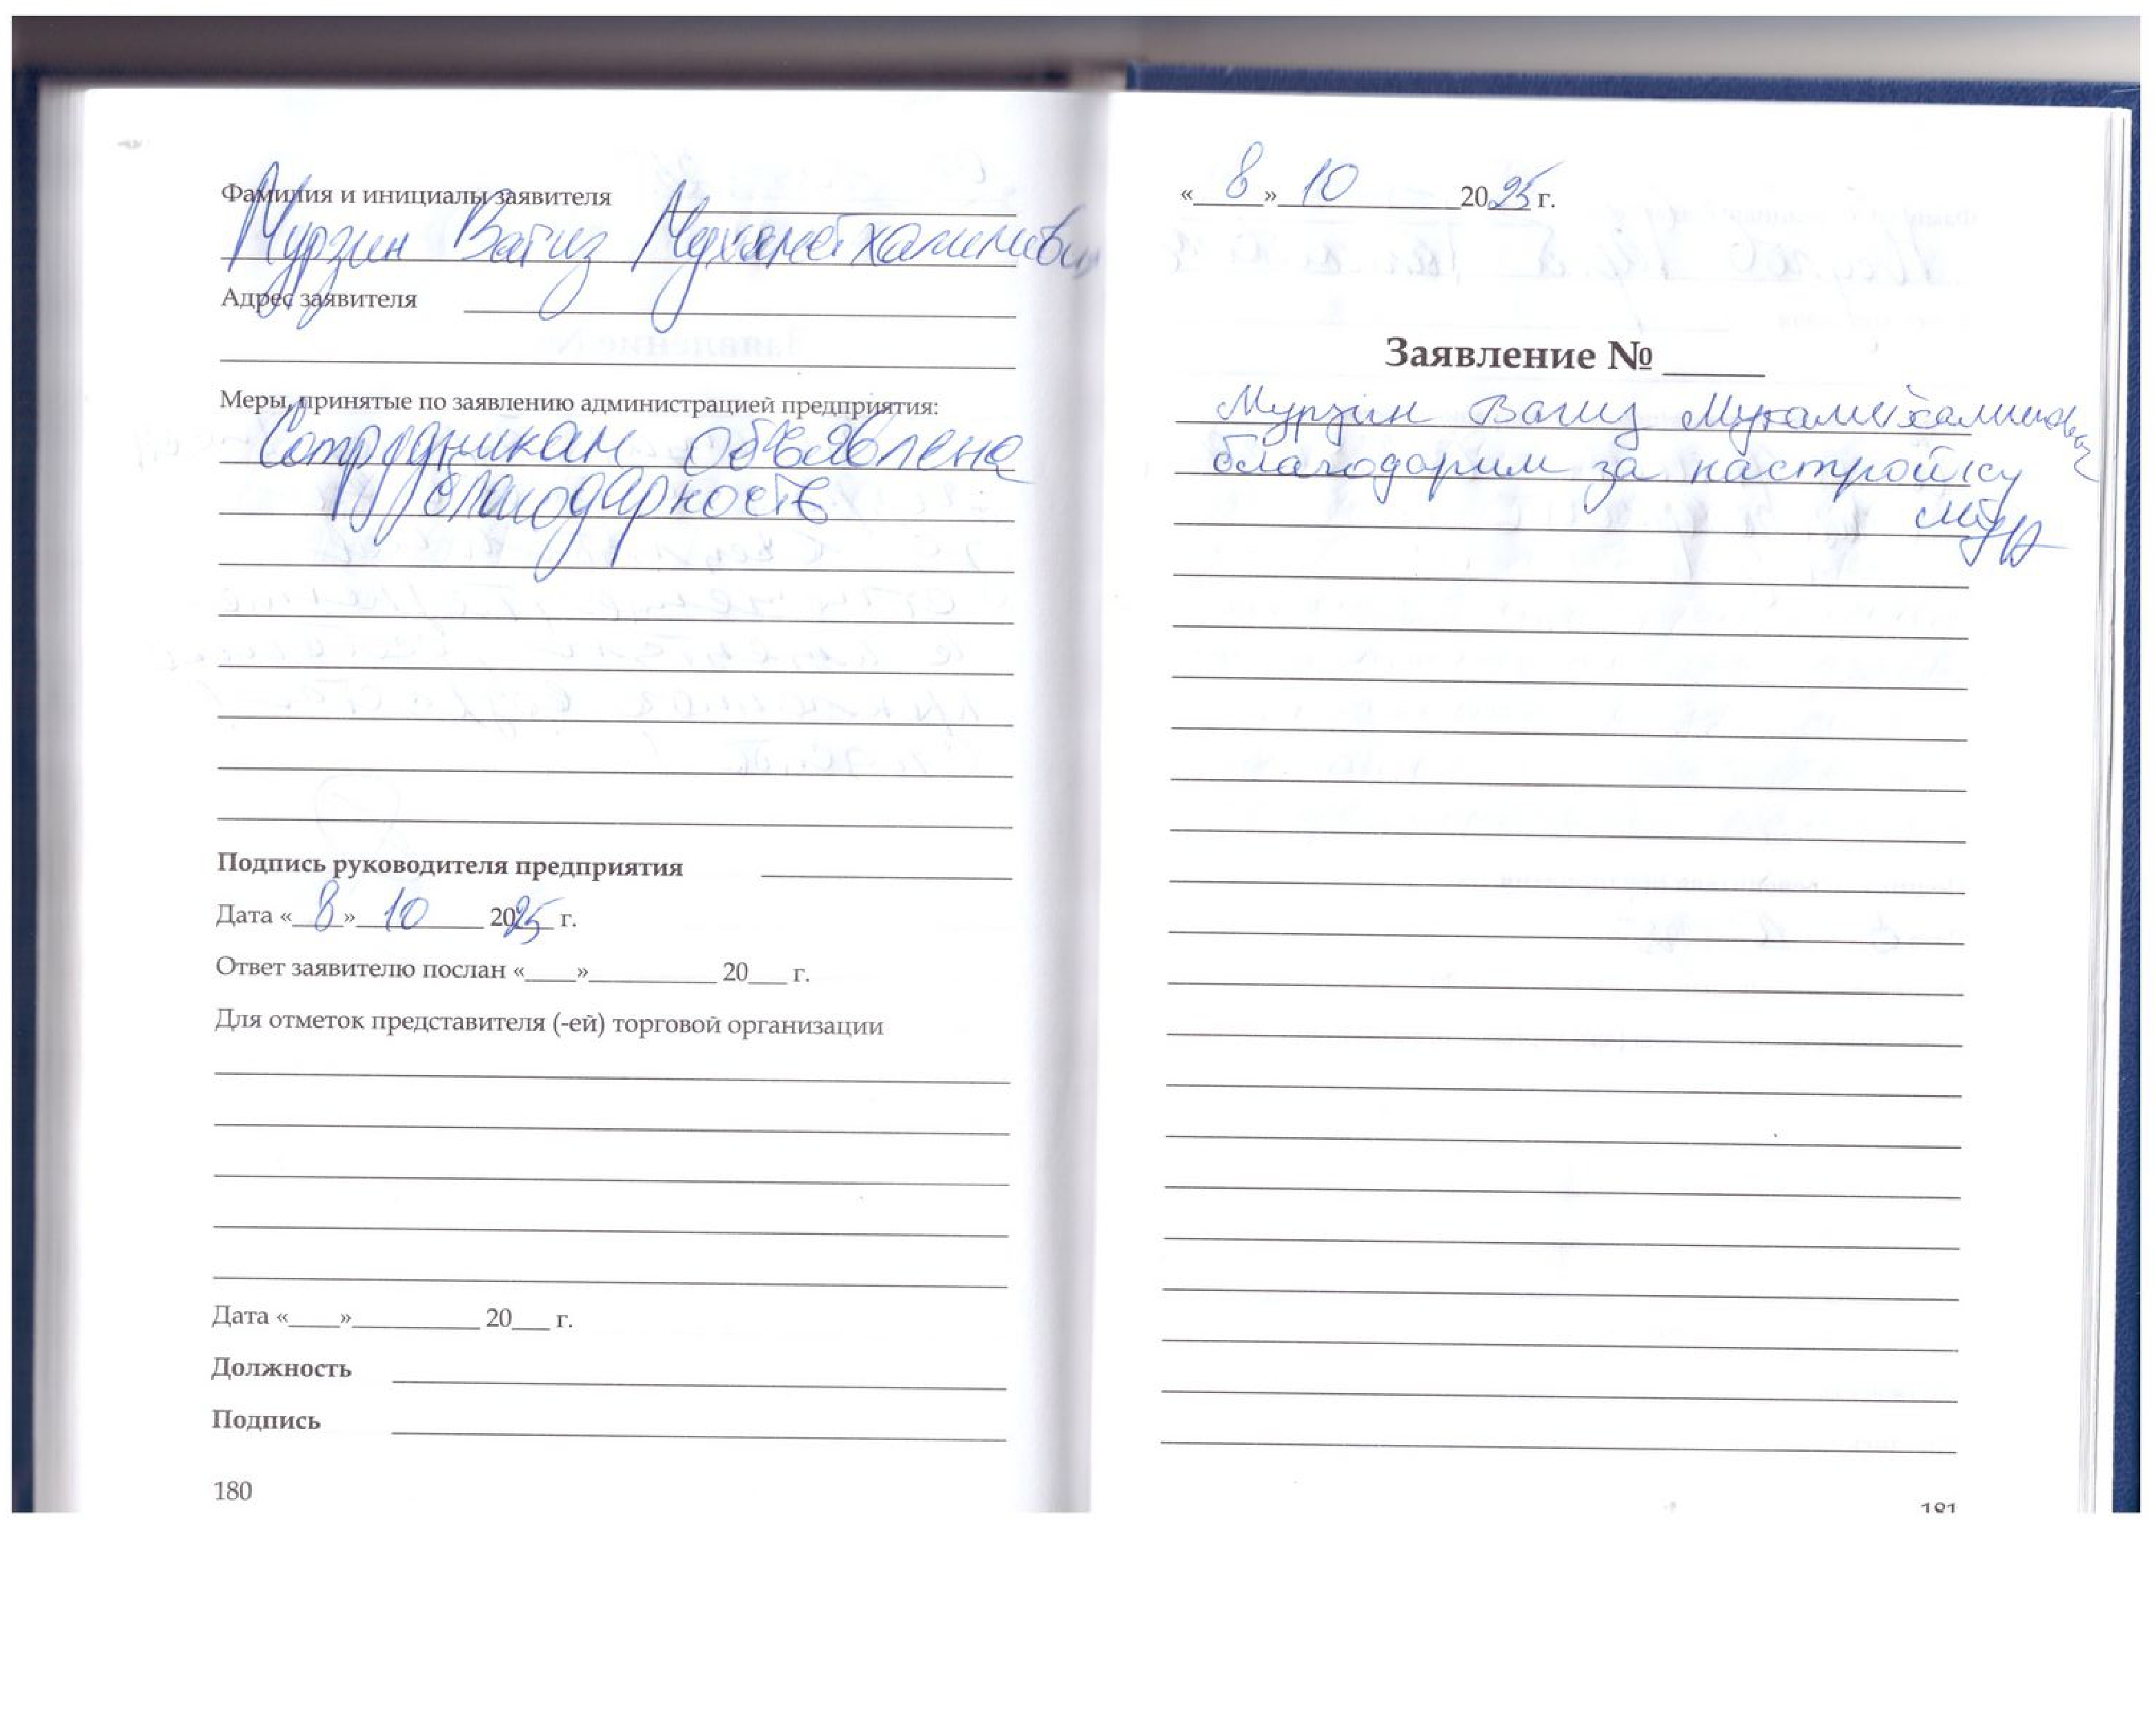 Фамилия и инициалы заявителя
Мурзин Вагиз Мухаметхалимович
Адрес заявителя
Меры, принятые по заявлению администрацией предприятия:
Сотрудникам объявлена
благодарность
Подпись руководителя предприятия
Дата «8» 10 2025 г.
Ответ заявителю послан «____»__________ 20___ г.
Для отметок представителя (-ей) торговой организации
Дата «____»__________ 20___ г.
Должность
Подпись
180
«8» 10 2025 г.
Заявление № _____
Мурзин Вагиз Мухаметхалимович
благодарим за настройку
181